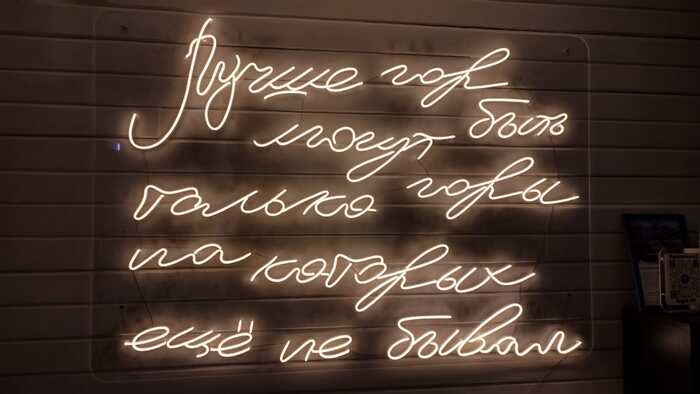 Лучше гор
могут быть
только горы
на которых
ещё не бывал